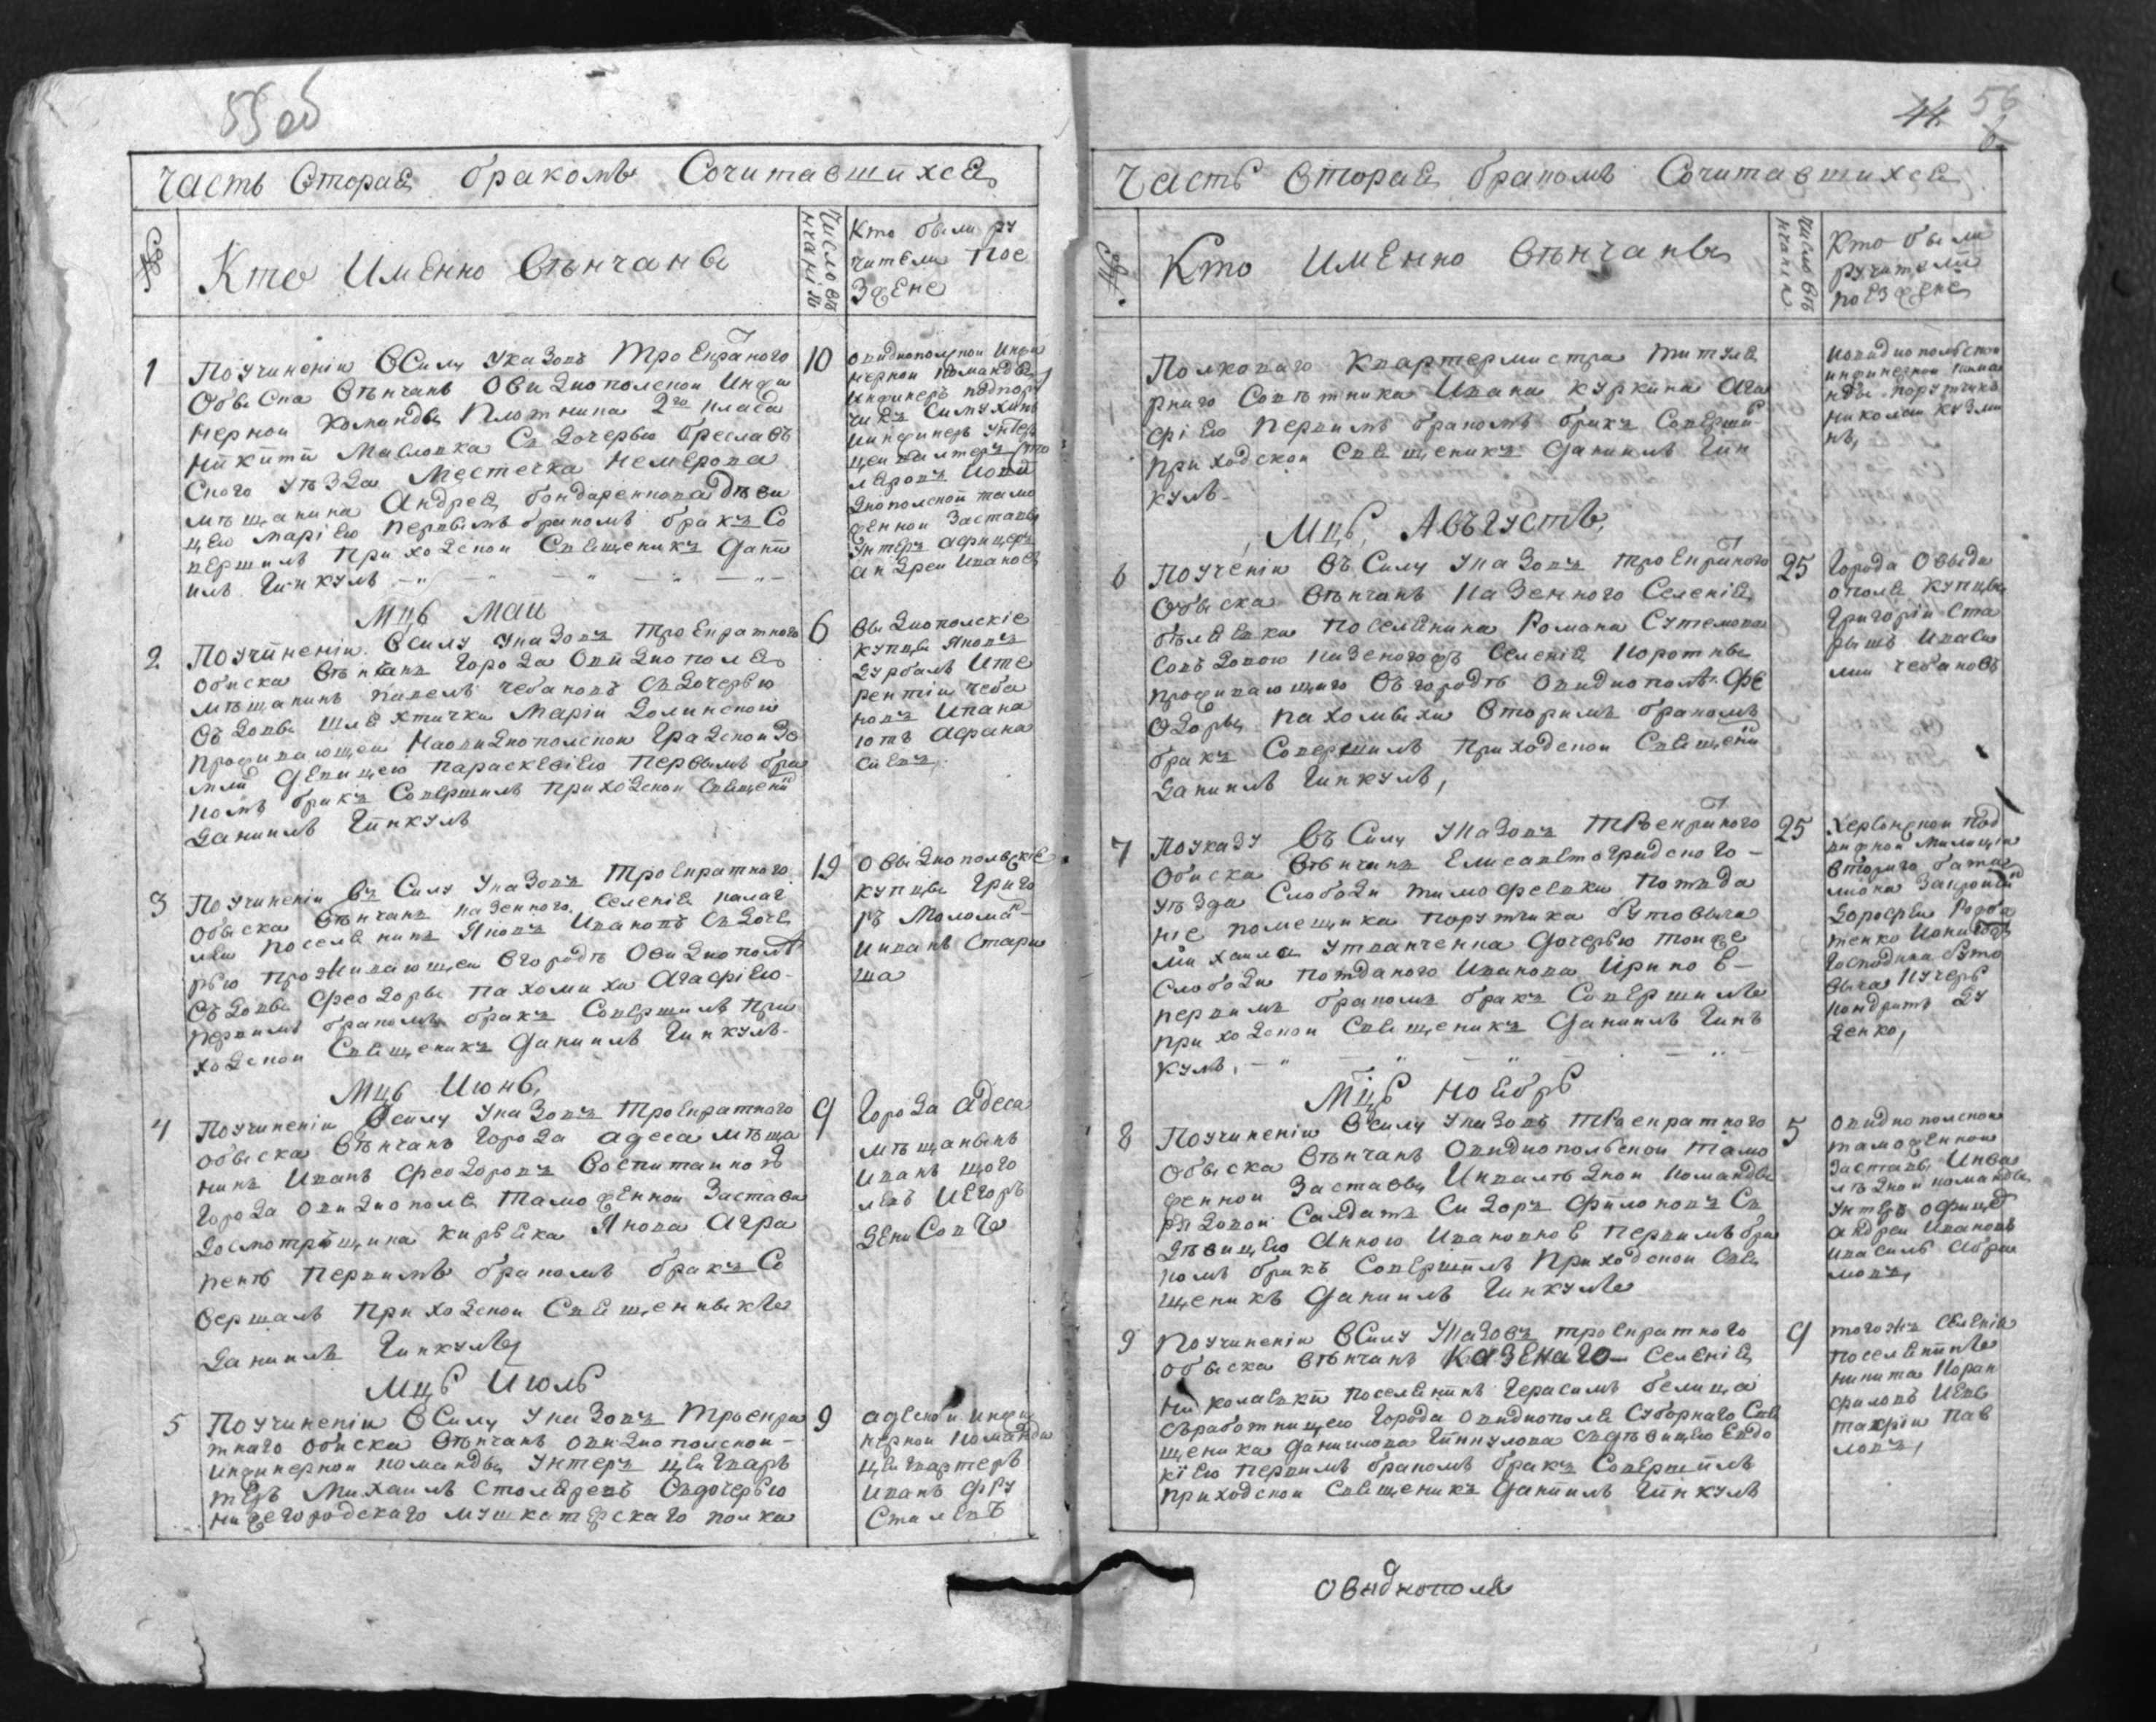 55 об
Часть Вторая бракомъ Сочитавшихся
№
Кто Именно Венчаны
Число венчанія
Кто были ру
чители Пое
зжене
1
По учиненіи Всилу указовъ Троекратного
Обыска Венчанъ Овидиополской Инжи
нерной Команды Плотника 2го класа
Никити Маслюка Съ Дочерью Бреславъ
Ского уезда Местечка Немерова
мещанина Андрея Бондаренкова деви
цею Маріею первымъ бракомъ бракъ Со
вершилъ Приходской Священикъ Дани
илъ Гинкулъ
10
Овидиополкой Инжи
нерной Команды
Инжинеръ подпору
чикъ
Иинжинеръ Унтеръ
цейхвахтеръ Сто
ляровъ Иови
диополской тамо
женной Заставы
Унтеръ афицеръ
Андреи Ивановъ
Мцъ Маи
2
По учиненіи Всилу указовъ Троекратного
Обиска Венчанъ Города Овидиополя
мещанинъ Павелъ Чебановъ Съ Дочерью
Въдовы Шляхтички Маріи Долинской
Проживающей Наовидиополской Градской Зе
мли Девицею Параскевіею Первымъ бра
комъ бракъ Совершилъ Приходской Священи
Даниилъ Гинкулъ
6
Овидиополскіе
купцы Яковъ
Дурбалъ Ите
рентіи Чеба
новъ Ивана
Афана
сиевъ
3
По учиненіи Въ Силу Указовъ Троекратного
Обыска Венчанъ Казенного Селенія Калаг
леи поселянинъ Яковъ Ивановъ Съ Доче
рью Проживающей Вгороде Овидиополе
Въдовы Феодоры Пахомихи Агафіею
первымъ бракомъ бракъ Совершилъ При
ходской Священикъ Даниилъ Гинкулъ
19
Овидиополскіе
купцы Григо
ръ Молома
Иванъ Стари
ша
Мцъ Июнъ
4
По учиненіи Всилу Указовъ Троекратного
Обыска Венчанъ Города Адеса меща
нинъ Иванъ Феодоровъ Воспитанкою
Города Овидиополя Таможенной Застави
Досмотрщика Киръяка Янова Агра
пена Первымъ бракомъ бракъ Со
вершалъ Приходской Священныкъ
Даниилъ Гинкулъ
9
Города Адеса
мещанынъ
Иванъ Щого
левъ Иегоръ
Денисовъ
Мцъ Июль
5
По учиненіи Всилу Указовъ Троекра
тнаго обиска Венчанъ Овидиополской
Инжинерной команды Унтеръ цейгвар
теръ Михаилъ Столяревъ Съдочерью
Нижегородскаго мушкатерскаго полка
9
Адеской Инжи
нерной Команды
цейгвартеръ
Иванъ Фру
Сталевъ
44 56
Часть Вторая бракомъ Сочитавшихся
№
Кто Именно Венчаны
Число венчанія
Кто были
ручители
поезжене
Полковаго Квартермистра Титуля
рнаго Советника Ивана Куркина Ага
фіею Первимъ бракомъ бракъ Соверши
Приходской Священикъ Даниилъ Гин
кулъ
Иовидиополской
инжинерной кома
нды поручикъ
Николай Кузми
нъ,
Мцъ, Авъгустъ,
6
По учиненіи Въ Силу Указовъ Троекратного
Обыска Венчанъ Казенного Селенія
Беляевки Поселянина Романа
Совъдовою Казеногожъ Селенія Коротны
проживающаго Въ городе Овидиополе Фе
одоры Пахомыхи Вторимъ бракомъ
бракъ Совершилъ Приходской Священи
Даниилъ Гинкулъ,
25
Города Овыди
ополя Купцы
Григоріи Ста
рышъ Иваси
лии Чебановъ
7
По указу Въ Силу Указовъ Троекратного
Обиска Венчанъ Елисаветоградского
Уезда Слободи Тимофеевки Подъда
ніе помещика Порутчика Бутовыча
Михаила Дочерью тоиже
Слободи Потданого Иванова Ириною
первимъ бракомъ бракъ Совершилъ
Приходской Священикъ Даниилъ Гинъ
кулъ,
25
Херсонской Под
вижной Милиціи
Второго бата
лиона
Дорофеи
Господина Буто
выча Кучеръ
Кондратъ Ду
денко,
Мцъ Ноябрь
8
По учиненіи Всилу Указовъ Троекратного
Обыска Венчанъ Овидиополской Тамо
женной Заставы Инвалидной Команды
Рядовой Салдатъ Сидоръ Филоновъ Съ
Девицею Анною Ивановною Первимъ бра
комъ бракъ Совершилъ Приходской Свя
щеникъ Даниилъ Гинкулъ
5
Овидиополской
таможенной
Заставы Инва
лидной команды
Унтеръ офицеръ
Андреи Ивановъ
Ивасилъ Абра
мовъ,
9
По учиненіи Всилу Указовъ Троекратного
Обыска Венчанъ Казенаго Селенія
Николаевки поселянинъ Герасимъ Белица
Съработницею Города Овидиополя Суборнаго Свя
щеника Даниилова Гинкулова Съдевицею Евдо
кіею Первимъ бракомъ бракъ Совершилъ
Приходской Священикъ Даниилъ Гинкулъ
9
тогожъ Селенія
Поселянинъ
Никита Коран
филовъ Иевс
тафіи Пав
ловъ,
Овидиополя